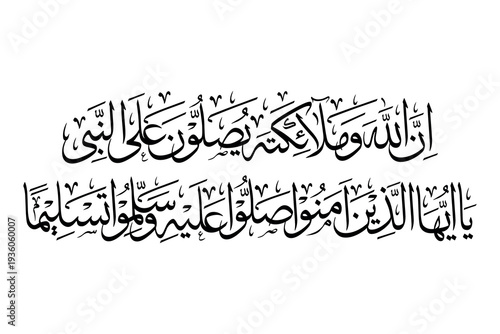 اِنَّ اللّٰهَ وَمَلَآئِكَتَهٗ يُصَلُّوْنَ عَلَى النَّبِىِّ
يَا اَيُّهَا الَّذِيْنَ اٰمَنُوْا صَلُّوْا عَلَيْهِ وَسَلِّمُوْا تَسْلِيْمًا
Adobe Stock | #1936060007